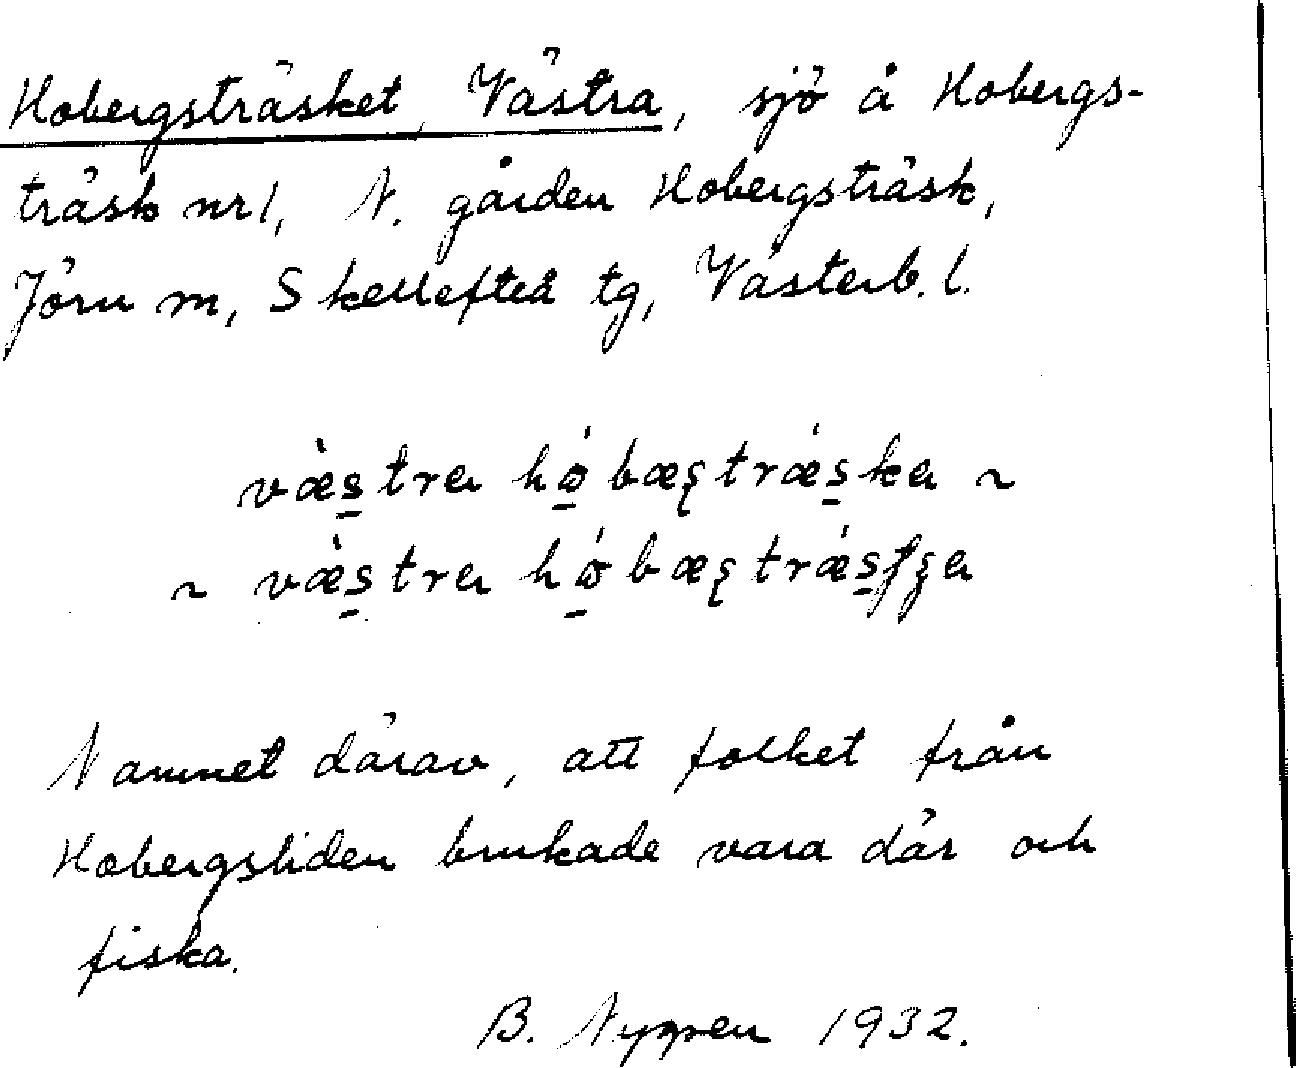 Hobergsträsket, Västra, sjö å Hobergs-
träsk nr 1, N. gården Hobergsträsk,
Jörn sn, Skellefteå tg, Västerb. l.
væ̀stra hǿbæʂtrǽska ~
~ væ̀stra hǿbæʂtrǽsʃʒa
Namnet därav, att folket från
Hobergsliden brukade vara där och
fiska.
B. Nygren 1932.